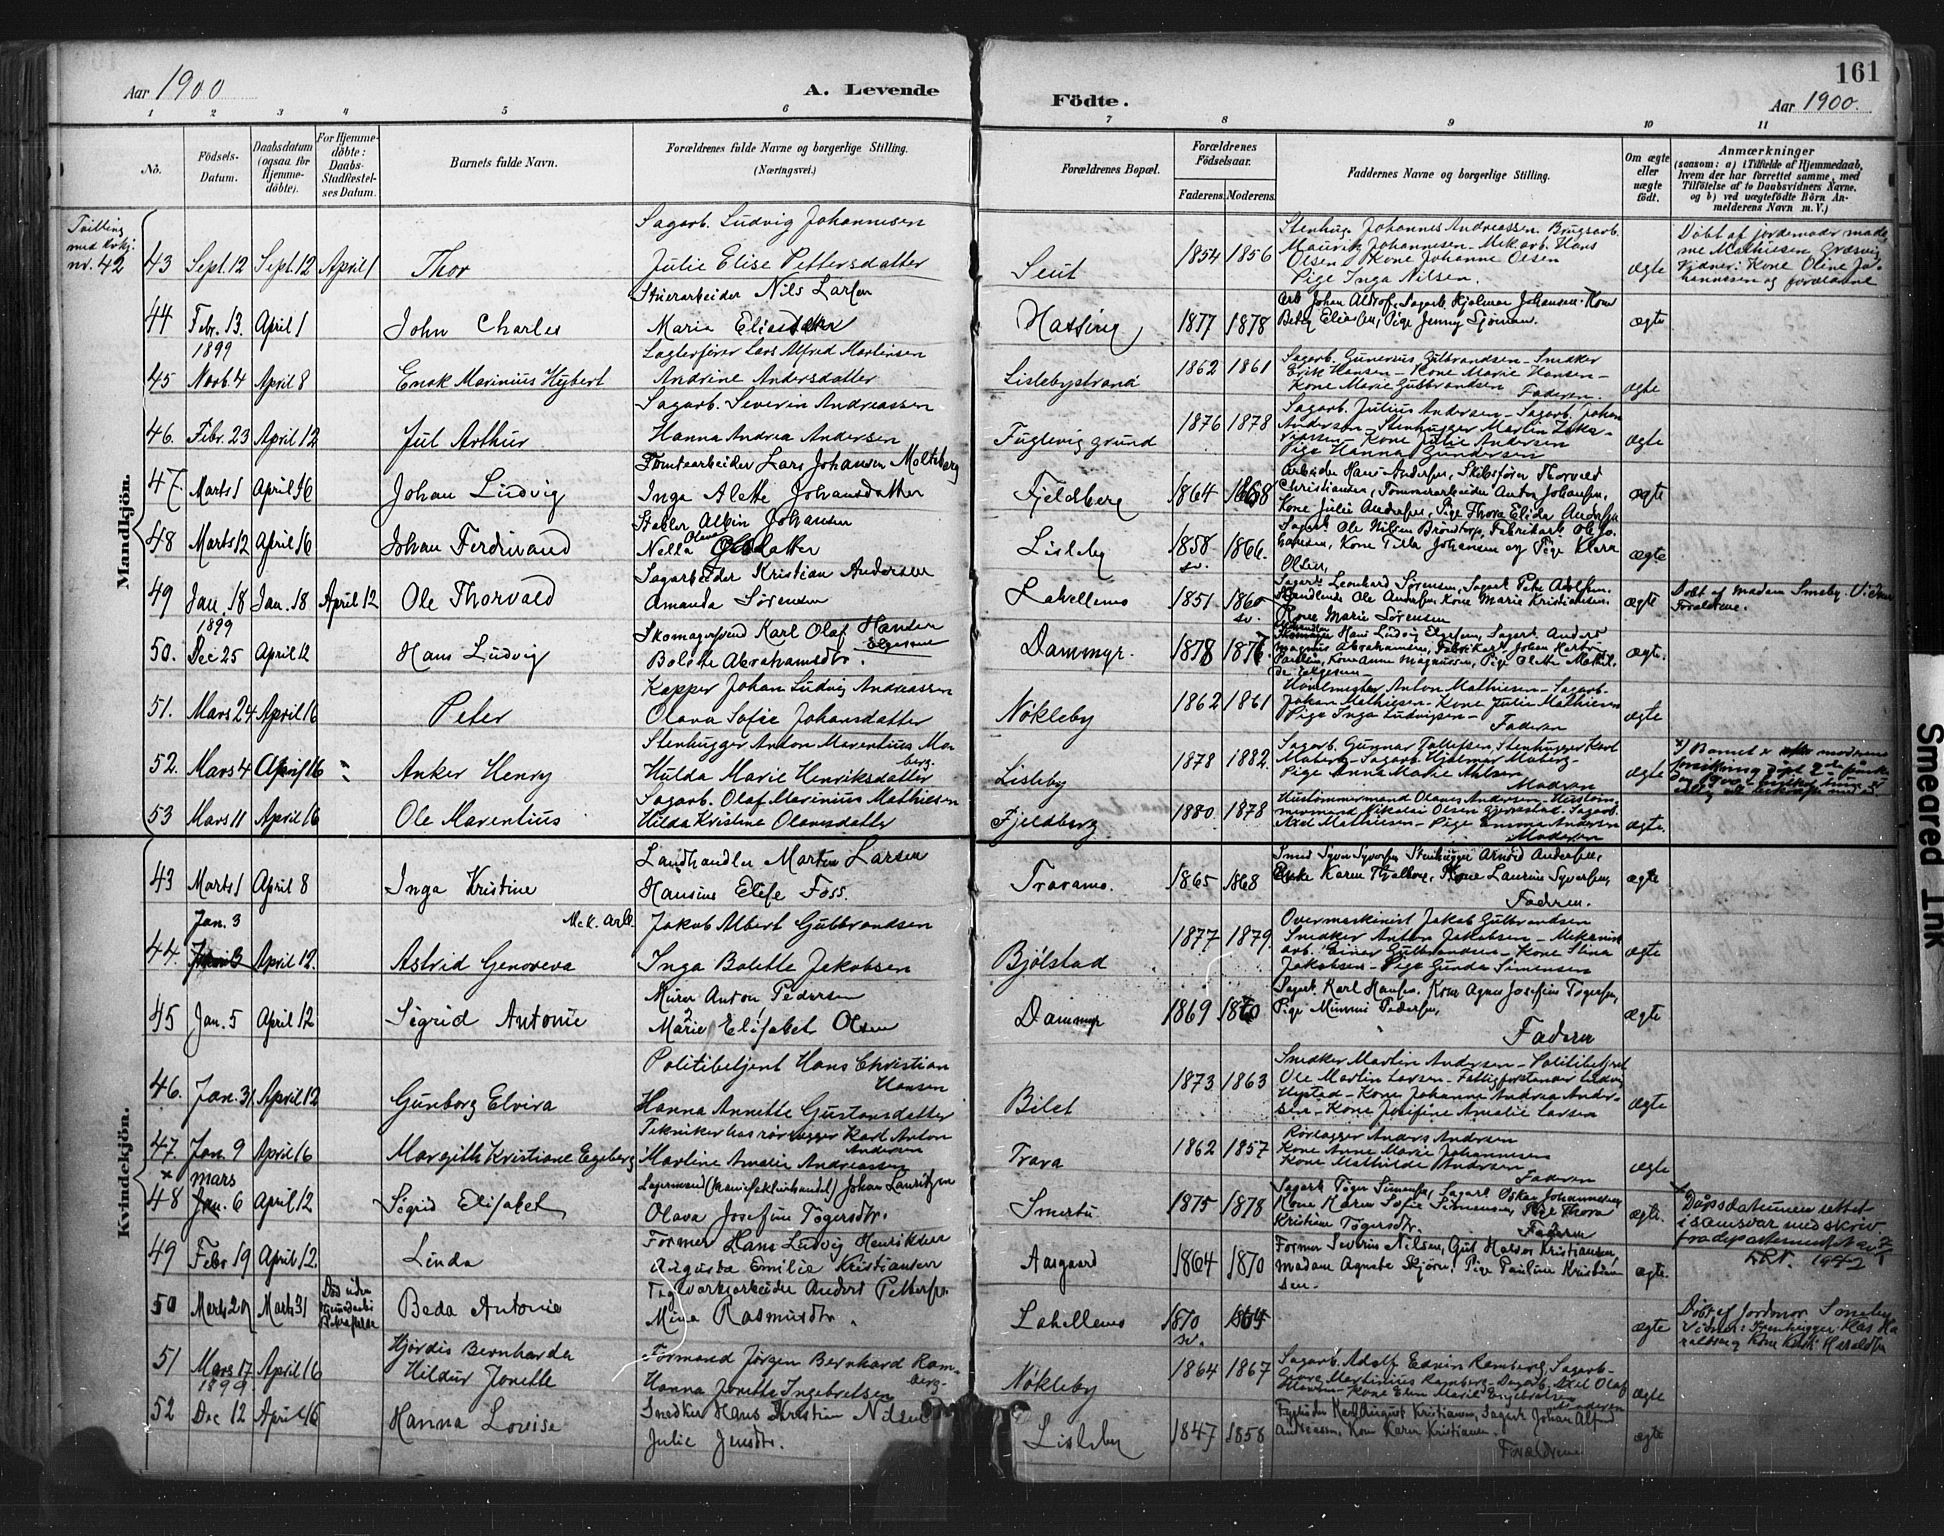 161
Aar 1900
A. Levende
Födte.
Aar 1900.
1 2 3 4 5 6 7 8 9 10 11
No.
Födsels-Datum.
Daabsdatum (ogsaa for Hjemme-döbte).
For Hjemme-döbte: Daabs-Stadfæstel-ses Datum.
Barnets fulde Navn.
Forældrenes fulde Navne og borgerlige Stilling. (Næringsvei.)
Forældrenes Bopæl.
Forældrenes Födselsaar.
Faderens Moderens
Faddernes Navne og borgerlige Stilling.
Om ægte eller uægte födt.
Anmærkninger
(saasom: a) i Tilfælde af Hjemmedaab, hvem der har forrettet samme, med Tilföielse af to Daabsvidners Navne. og b) ved uægtefödte Börn An-melderens Navn m. V.)
Mandkjön.
Tvilling med kvkj. nr. 42
43 Sept. 12 Sept. 12 April 1 Thor
Sagarb. Ludvig Johannesen
Julie Elise Pettersdatter
Seut 1854 1856
Stenhug. Johannes Andreassen. Brugsarb.
Maurits Johannesen - Mek. arb. Hans
Olsen - Kone Johanne Olsen
Pige Inga Nilsen.
ægte
Döbt af jordemoder mada-
me Mathiesen Græsvig
Vidner: Kone Oline Jo-
hannesen og forældrene
44 Febr. 13. April 1 John Charles
Stuerarbeider Nils Larsen
Marie Eliasdatter
Hassing 1877 1878
ægte
1899
45 Novb. 4 April 8 Enok Marinius Hybert
Lars Alfred Martinsen
Andrine Andersdatter
Lislebystrand 1862 1861
Sagarb. Gunerius Gulbrandsen - Snedker
Erik Hansen - Kone Marie Hansen -
Kone Marie Gulbrandsen Faderen.
ægte
46. Febr. 23 April 12 Jul Arthur
Sagarb. Severin Andreassen
Hanna Andrea Andersen
Fuglevig grund 1876 1878
Sagarb. Julius Andersen - Sagarb. Johan
Andersen - Stenhugger Martin
Kone Julie Andersen
Pige Hanna Gundersen
ægte
47. Marts 1 April 16 Johan Ludvig
Tomtearbeider Lars Johansen Moltzberg
Inga Alette Johansdatter
Fjeldberg 1864 1868
Arbeider Hans Andersen, Skibsfører Thorvald
Christiansen, Tømmerarbeider Anton Johansen,
Kone Julie Andersen, Pige Thora Elida Andersen
ægte
48 Marts 12 April 16 Johan Ferdinand
Stabler Albin Johansen
Nella Olava
Lisleby 1858 sv. 1866.
Sagarb. Ole Nilsen Brondtorp, Fabrikarb. Ole Jo-
hansen, Kone Tilla Johansen og Pige Klara
Olsen,
ægte
49 Jan. 18 Jan. 18 April 12 Ole Thorvald
Sagarbeider Kristian Andersen
Amanda Sørensen
Lahellemo 1851 1860 sv.
Sagarb. Leonhard Sørensen, Sagarb. Peter Adolfsen.
Handlende Ole Andersen, Kone Marie Kristiansen.
Kone Marie Sørensen
ægte
Döbt af madam Smeby. Vidner
Forældrene.
1899
50. Dec 25 April 12 Hans Ludvig
Skomagersvend Karl Olaf Hansen Elgesem
Bolette Abrahamsdtr.
Dammyr. 1878 1876
ægte.
51. Mars 24 April 16 Peter
Kapper Johan Ludvig Andreassen
Olava Sofie Johansdatter
Nökleby 1862 1861
Anton Mathiesen - Sagarb.
Johan Mathiesen - Kone Julie Mathiesen
Pige Inga Ludvigsen - Faderen
ægte
52. Mars 4 April 16 Anker Henry
Stenhugger Anton Marentius Mo-
berg.
Hulda Marie Henriksdatter
Lisleby 1878 1882.
Sagarb. Gunnar Tollefsen, Stenhugger Karl
Moberg - Sagarb. Hjalmar Moberg -
Pige Anna Marie Nilsen
Moderen
ægte
53 Mars 11 April 16 Ole Marentius
Sagarb. Olaf Marinius Mathiesen
Hilda Kristine Olavesdatter
Fjeldberg 1880 1878
Hustömmermand Olaves Andersen - Hustöm-
mermand Nikolai Olsen Sagarb.
Axel Mathiesen - Pige Emma Andersen
Moderen
ægte.
Kvindekjön.
43 Marts 1 April 8 Inga Kristine
Landhandler Martin Larsen
Hansine Elise Foss.
Traramo. 1865 1868
Smed Syver Syversen, Stenhugger Arnold Andersen,
Enke Karen Kone Laurine Syversen,
Faderen.
ægte
Jan. 3
44. April 12. Astrid Genoveva
Mek. arb. Jakob Albert Gulbrandsen
Inga Bolette Jakobsen
Bjölstad 1877 1879.
Overmaskinist Jakob Gulbrandsen
Snedker Anton Jakobsen - Mekanisk
arb. Einar Gulbrandsen - Kone Stina
Jakobsen - Pige Gunda Simensen
ægte
45 Jan. 5 April 12 Sigrid Antonie
Murer Anton Pedersen
2 1
Marie Elisabet Olsen
Dammyr 1869 1870
Sagarb. Karl Hansen. Kone Agnes Josefine Tøgersen,
Pige Minnie Pedersen,
Faderen
ægte
46. Jan. 31. April 12 Gunborg Elvira
Politibetjent Hans Christian
Hansen
Hanna Annette Gustavsdatter
Bilet 1873 1863
Snedker Martin Andersen - Politibetjent
Ole Martin Larsen - Fattigforstander Ludvig
Hystad - Kone Johanne Andrea Ander-
sen - Kone Josefine Amalie Larsen
ægte
47. Jan. 9 April 16 Margith Kristiane Egeberg
Karl Anton
Andersen
Martine Amalie Andreassen
Trara 1862 1857
Rörlægger Anders Andersen
Kone Anne Marie Johannesen
Kone Mathilde Andersen
Faderen
ægte
× mars
48 Jan. 6 April 12 Sigrid Elisabet
Lagermand (Manufakturhandel) Johan Lauritzen
Olava Josefine Tøgersdtr.
Smertu 1875 1878
Sagarb. Tøger Simensen, Sagarb. Oskar Johannesen,
Kone Karen Sofie Simensen, Pige Thora
Kristine Tøgersdtr. Faderen
ægte.
× Dåpsdatumen rettet
i samsvar med skriv
fra departementet
1942
49 Febr. 19 April 12. Linda
Former Hans Ludvig Henriksen
Augusta Emilie Kristiansen
Aasgaard 1864 1870
Former Severin Nilsen, Gut Halvor Kristiansen,
madam Agnete Skjørn, Pige Pauline Kristian-
sen.
ægte.
50 Marts 20 Marts 31 Beda Antonie
Teglværksarbeider Anders Pettersen
Mina Rasmusdtr.
Lahellemo 1870 sv.
ægte
Döbt af Jordmor Smeby
Vidner: Stenhugger Klas Ha-
raldsen
51 Mars 17 April 16 Hjördis Bernharda
Hildur Jonette
Formand Jörgen Bernhard Ram-
berg.
Hanna Jonette Ingebretsen
Nökleby 1864 1867
Sagarb. Adolf Edvin Ramberg, Sagarb.
Georg Martinius Ramberg - Axel Olaf
Kone Elen Marie Engebretsen
Faderen
ægte
1899
52 Dec 12 April 16 Hanna Lovise
Snedker Hans Kristian Nilsen
Julie Jensdtr.
Lisleby 1847 1858
Karl August Kristiansen, Sagarb. Johan Alfred
Andreassen, Kone Karen Kristiansen.
Forældrene
ægte
Smeared Ink